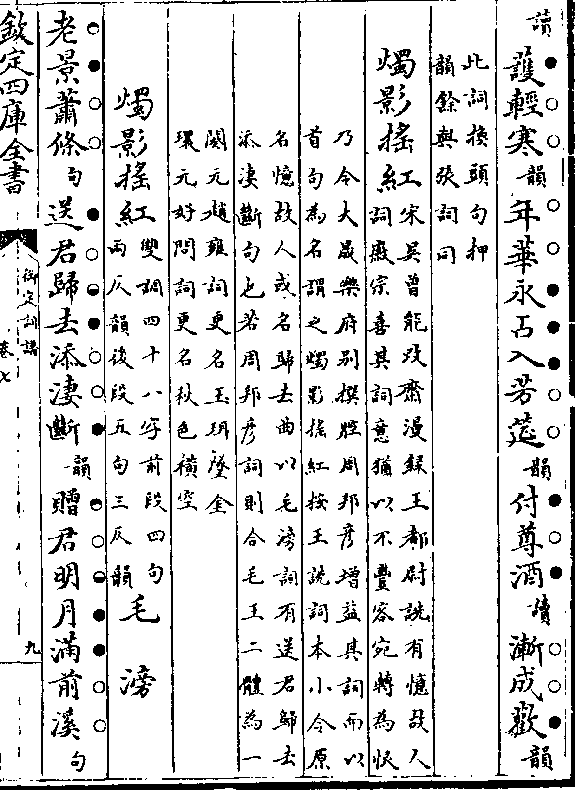 讀護輕寒韻年華永占入芳筵韻付尊酒讀漸成歡韻
此詞換頭句押
韻餘與張詞同
燭影搖紅宋吳曾能改齋漫錄王都尉詵有憶故人
詞徽宗喜其詞意猶以不豐容宛轉為恨
乃令大晟樂府別撰腔周邦彥增益其詞而以
首句為名謂之燭影搖紅按王詵詞本小令原
名憶故人或名歸去曲以毛滂詞有送君歸去
添淒斷句也若周邦彥詞則合毛王二體為一
闋元趙雍詞更名玉珥墜金
環元好問詞更名秋色橫空
燭影搖紅雙調四十八字前段四句
兩仄韻後段五句三仄韻 毛 滂
老景蕭條句送君歸去添淒斷韻贈君明月滿前溪句
欽定四庫全書
御定詞譜
卷七
九